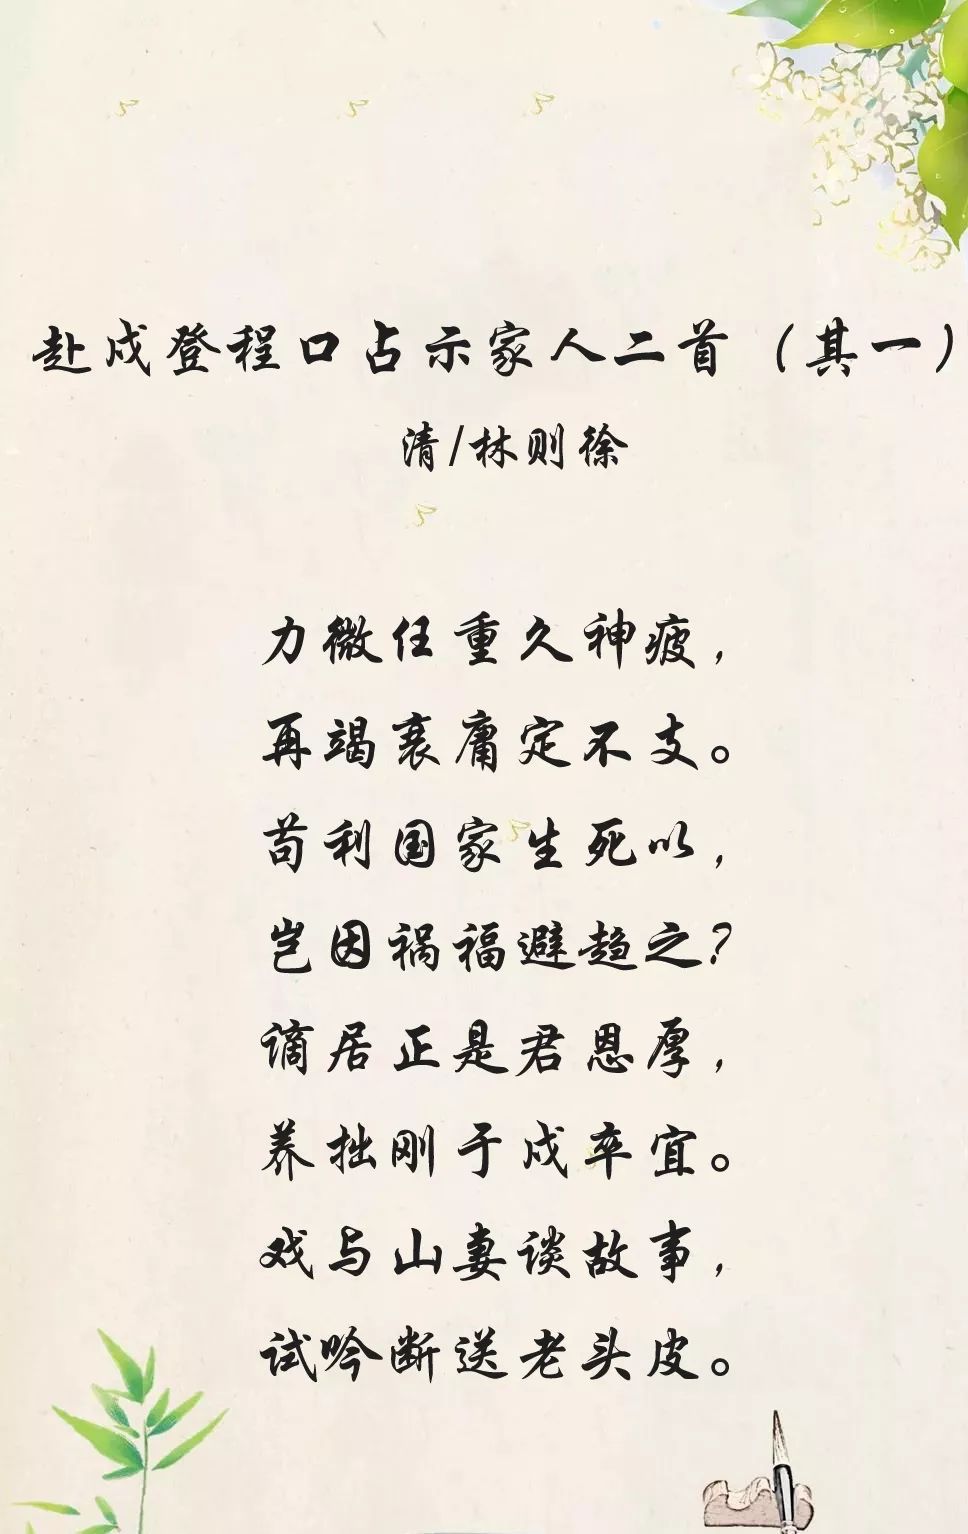 赴戍登程口占示家人二首（其一）
清/林则徐
力微任重久神疲，
再竭衰庸定不支。
苟利国家生死以，
岂因祸福避趋之？
谪居正是君恩厚，
养拙刚于戍卒宜。
戏与山妻谈故事，
试吟断送老头皮。